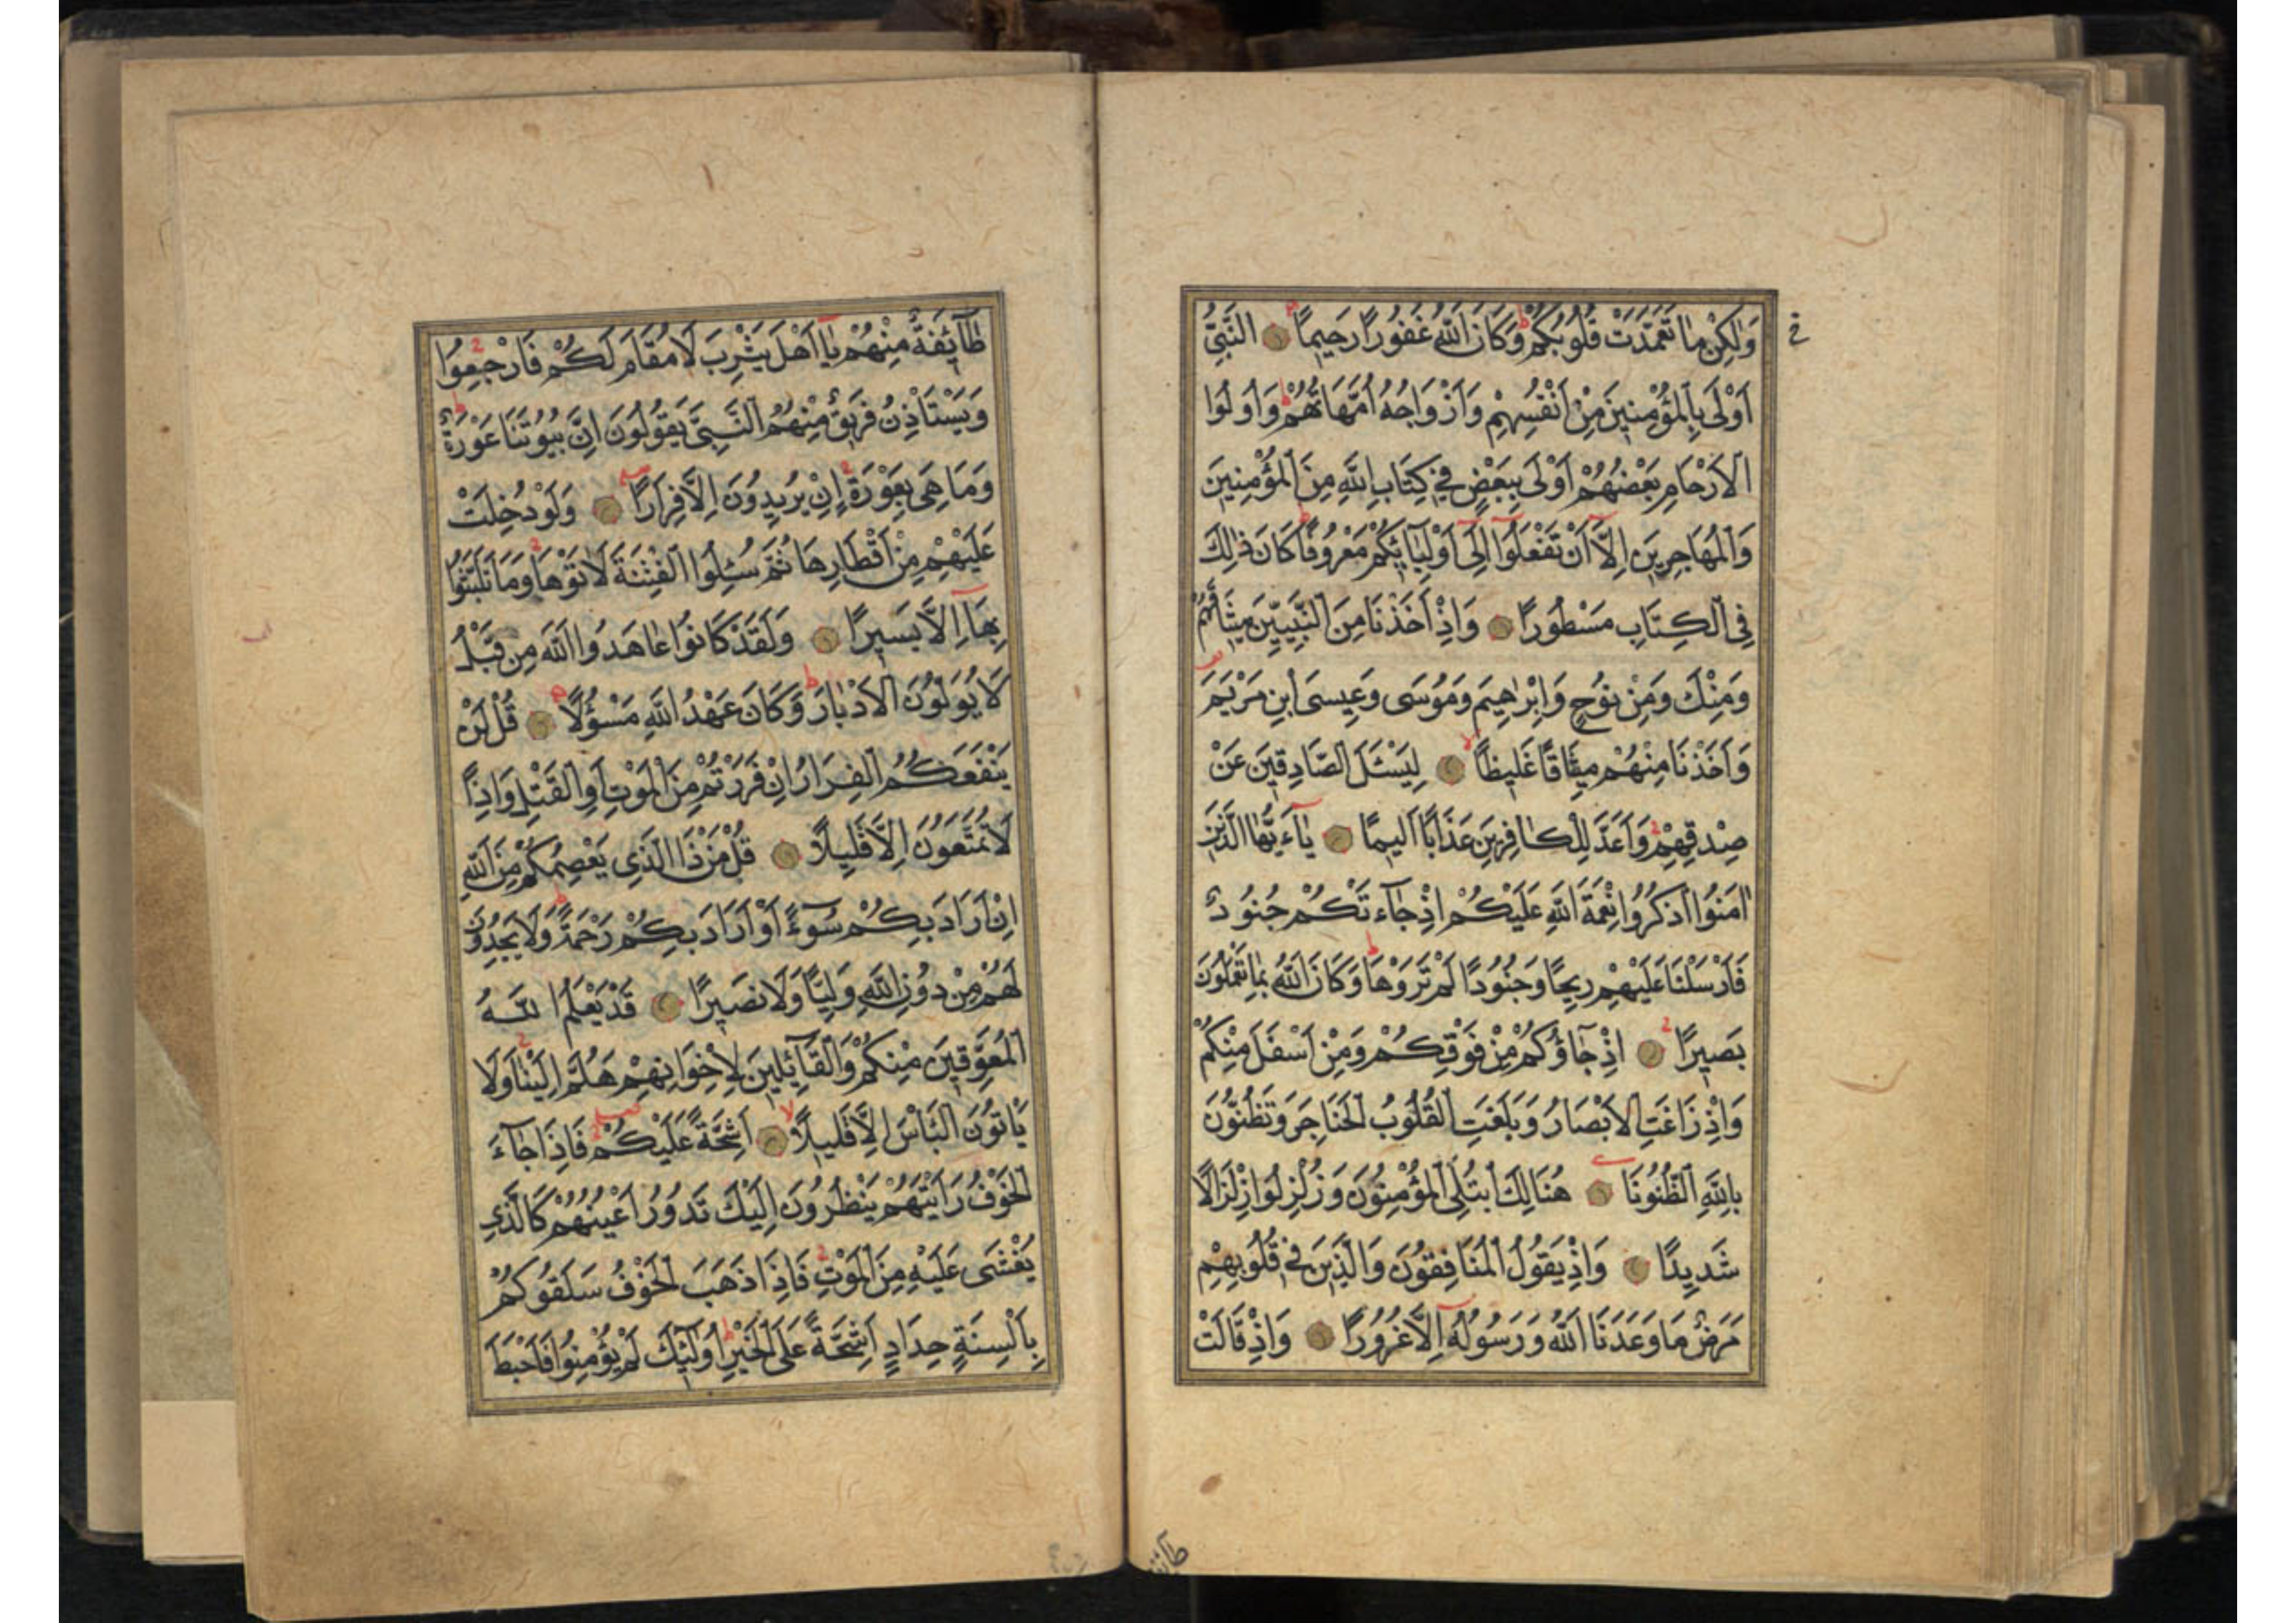 وَلٰكِنْ مَا تَعَمَّدَتْ قُلُوبُكُمْ وَكَانَ اللهُ غَفُورًا رَحِيمًا النَّبِيُّ
اَوْلَى بِالْمُؤْمِنِينَ مِنْ اَنْفُسِهِمْ وَاَزْوَاجُهُ اُمَّهَاتُهُمْ وَاُولُوا
الْاَرْحَامِ بَعْضُهُمْ اَوْلَى بِبَعْضٍ فِي كِتَابِ اللهِ مِنَ الْمُؤْمِنِينَ
وَالْمُهَاجِرِينَ اِلَّآ اَنْ تَفْعَلُوٓا اِلَىٓ اَوْلِيَآئِكُمْ مَعْرُوفًا كَانَ ذٰلِكَ
فِي الْكِتَابِ مَسْطُورًا وَاِذْ اَخَذْنَا مِنَ النَّبِيِّينَ مِيثَاقَهُمْ
وَمِنْكَ وَمِنْ نُوحٍ وَاِبْرٰهِيمَ وَمُوسَى وَعِيسَى ابْنِ مَرْيَمَ
وَاَخَذْنَا مِنْهُمْ مِيثَاقًا غَلِيظًا لِيَسْئَلَ الصَّادِقِينَ عَنْ
صِدْقِهِمْ وَاَعَدَّ لِلْكَافِرِينَ عَذَابًا اَلِيمًا يَآءَيُّهَا الَّذِينَ
اٰمَنُوا اذْكُرُوا نِعْمَةَ اللهِ عَلَيْكُمْ اِذْ جَآءَتْكُمْ جُنُودٌ
فَاَرْسَلْنَا عَلَيْهِمْ رِيحًا وَجُنُودًا لَمْ تَرَوْهَا وَكَانَ اللهُ بِمَا تَعْمَلُونَ
بَصِيرًا اِذْ جَآؤُكُمْ مِنْ فَوْقِكُمْ وَمِنْ اَسْفَلَ مِنْكُمْ
وَاِذْ زَاغَتِ الْاَبْصَارُ وَبَلَغَتِ الْقُلُوبُ الْحَنَاجِرَ وَتَظُنُّونَ
بِاللهِ الظُّنُونَا هُنَالِكَ ابْتُلِىَ الْمُؤْمِنُونَ وَزُلْزِلُوا زِلْزَالًا
شَدِيدًا وَاِذْ يَقُولُ الْمُنَافِقُونَ وَالَّذِينَ فِي قُلُوبِهِمْ
مَرَضٌ مَا وَعَدَنَا اللهُ وَرَسُولُهُٓ اِلَّا غُرُورًا وَاِذْ قَالَتْ
طَآئِفَةٌ مِنْهُمْ يَآ اَهْلَ يَثْرِبَ لَا مُقَامَ لَكُمْ فَارْجِعُوا
وَيَسْتَاْذِنُ فَرِيقٌ مِنْهُمُ النَّبِىَّ يَقُولُونَ اِنَّ بُيُوتَنَا عَوْرَةٌ
وَمَا هِىَ بِعَوْرَةٍ اِنْ يُرِيدُونَ اِلَّا فِرَارًا وَلَوْ دُخِلَتْ
عَلَيْهِمْ مِنْ اَقْطَارِهَا ثُمَّ سُئِلُوا الْفِتْنَةَ لَاٰتَوْهَا وَمَا تَلَبَّثُوا
بِهَآ اِلَّا يَسِيرًا وَلَقَدْ كَانُوا عَاهَدُوا اللهَ مِنْ قَبْلُ
لَا يُوَلُّونَ الْاَدْبَارَ وَكَانَ عَهْدُ اللهِ مَسْؤُلًا قُلْ لَنْ
يَنْفَعَكُمُ الْفِرَارُ اِنْ فَرَرْتُمْ مِنَ الْمَوْتِ اَوِ الْقَتْلِ وَاِذًا
لَا تُمَتَّعُونَ اِلَّا قَلِيلًا قُلْ مَنْ ذَا الَّذِي يَعْصِمُكُمْ مِنَ اللهِ
اِنْ اَرَادَ بِكُمْ سُوٓءًا اَوْ اَرَادَ بِكُمْ رَحْمَةً وَلَا يَجِدُونَ
لَهُمْ مِنْ دُونِ اللهِ وَلِيًّا وَلَا نَصِيرًا قَدْ يَعْلَمُ اللهُ
الْمُعَوِّقِينَ مِنْكُمْ وَالْقَآئِلِينَ لِاِخْوَانِهِمْ هَلُمَّ اِلَيْنَا وَلَا
يَاْتُونَ الْبَاْسَ اِلَّا قَلِيلًا اَشِحَّةً عَلَيْكُمْ فَاِذَا جَآءَ
الْخَوْفُ رَاَيْتَهُمْ يَنْظُرُونَ اِلَيْكَ تَدُورُ اَعْيُنُهُمْ كَالَّذِي
يُغْشَى عَلَيْهِ مِنَ الْمَوْتِ فَاِذَا ذَهَبَ الْخَوْفُ سَلَقُوكُمْ
بِاَلْسِنَةٍ حِدَادٍ اَشِحَّةً عَلَى الْخَيْرِ اُولٰئِكَ لَمْ يُؤْمِنُوا فَاَحْبَطَ